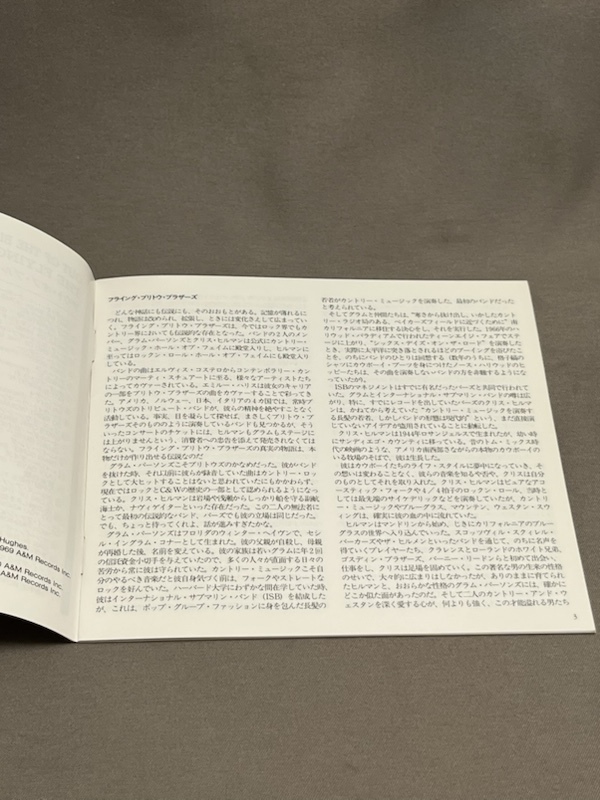 Hughes
1969 A&M Records Inc.
A&M Records Inc.
A&M Records Inc.
フライング・ブリトウ・ブラザーズ
どんな神話にも伝説にも、そのおおもとがある。記憶が薄れるに
つれ、物語は改められ、拡張し、ときには変化さえして広まってい
く。フライング・ブリトウ・ブラザーズは、今ではロック界でもカ
ントリー界においても伝説的な存在となった。バンドの2人のメン
バー、グラム・パーソンズとクリス・ヒルマンは公式にカントリー
・ミュージック・ホール・オブ・フェイムに殿堂入りし、ヒルマンに
至ってはロックン・ロール・ホール・オブ・フェイムにも殿堂入りし
ている。
バンドの曲はエルヴィス・コステロからコンテンポラリー・カン
トリーのマーティ・スチュアートに至る、様々なアーティストたち
によってカヴァーされている。エミルー・ハリスは彼女のキャリア
の一部をブリトウ・ブラザーズの曲をカヴァーすることで彩ってき
た。アメリカ、ノルウェー、日本、イタリアの4カ国では、常時ブ
リトウズのトリビュート・バンドが、彼らの精神を絶やすことなく
活動している。事実、目を凝らして探せば、まさしくブリトウ・ブ
ラザーズそのもののように演奏しているバンドも見つかるが、そう
いったコンサートのチケットには、ヒルマンもグラムもステージに
は上がりませんという、消費者への忠告を添えて発売されなくては
ならない。フライング・ブリトウ・ブラザーズの真実の物語は、本
物だけが作り出せる伝説なのだ
グラム・パーソンズこそブリトウズのかなめだった。彼がバンド
を抜けた時、それ以前に彼らが録音していた曲はカントリー・ロッ
クとして大ヒットすることはないと思われていたにもかかわらず、
現在ではロックとC&Wの歴史の一部として認められるようになっ
ている。クリス・ヒルマンは岩場や浅瀬からしっかり船を守る副航
海士か、ナヴィゲイターといった存在だった。この二人の無法者に
とって最初の伝説的なバンド、バーズでも彼の立場は同じだった。
でも、ちょっと待ってくれよ。話が進みすぎたかな。
グラム・パーソンズはフロリダのウィンター・ヘイヴンで、セシ
ル・イングラム・コナーとして生まれた。彼の父親が自殺し、母親
が再婚した後、名前を変えている。彼の家族は若いグラムに年2回
の信託資金小切手を与えていたので、多くの人々が直面する日々の
苦労から常に彼は守られていた。カントリー・ミュージックこそ自
分のやるべき音楽だと彼自身気づく前は、フォークやストレートな
ロックを好んでいた。ハーバード大学にわずかな間在学していた時、
彼はインターナショナル・サブマリン・バンド(ISB)を結成した
が、これは、ポップ・グループ・ファッションに身を包んだ長髪の
若者がカントリー・ミュージックを演奏した、最初のバンドだった
と考えられている。
そしてグラムと仲間たちは、“寒さから抜け出し、いかしたカント
リー・ラジオ局のある、ベイカーズフィールドに近づくために”南
カリフォルニアに移住する決心をし、それを実行した。1966年のハ
リウッド・パラディアムで行われたティーンエイジ・フェアでステ
ージに上がり、“シックス・デイズ・オン・ザ・ロード”を演奏した
とき、実際に太平洋に突き落とされるほどのブーイングを浴びたこ
とを、のちにバンドのひとりは回想する（数年のうちに、格子縞の
シャツにカウボーイ・ブーツを身につけたノース・ハリウッドのヒ
ッピーたちは、その曲を演奏しないバンドの方を非難するようにな
っていたが）。
ISBのマネジメントはすでに有名だったバーズと共同で行われて
いた。グラムとインターナショナル・サブマリン・バンドの噂は広
がり、特に、すでにレコードを出していたバーズのクリス・ヒルマ
ンは、かねてから考えていた“カントリー・ミュージックを演奏す
る長髪の若者、しかしバンドの形態は現代的”という、まだ直接演
じていないアイデアが盗用されていることに動転した。
クリス・ヒルマンは1944年ロサンジェルスで生まれたが、幼い時
にサンディエゴ・カウンティに移っている。昔のトム・ミックス時
代の映画のような、アメリカ南西部さながらの本物のカウボーイの
いる牧場のそばで、彼は生長した。
彼はカウボーイたちのライフ・スタイルに夢中になっていき、そ
の想いは変わることなく、彼らの音楽を知るや否や、クリスは自分
のものとしてそれを取り入れた。クリス・ヒルマンはピュアなアコ
ースティック・フォークや4/4拍子のロックン・ロール、当時と
しては最先端のサイケデリックなどを演奏していたが、カントリ
ー・ミュージックやブルーグラス、マウンテン、ウェスタン・スウ
ィングは、確実に彼の血の中に流れていた。
ヒルマンはマンドリンから始め、じきにカリフォルニアのブルー
グラスの世界へ入り込んでいった。スコッツヴィル・スクィレル・
バーカーズやザ・ヒルメンといったバンドを通じて、のちに名声を
得ていくプレイヤーたち、クラレンスとローランドのホワイト兄弟、
ゴスディン・ブラザーズ、バーニー・リードンらと初めて出会い、
仕事をし、クリスは足場を固めていく。この著名な男の生来の性格
のせいで、大々的に広まりはしなかったが、ありのままに育てられ
たヒルマンと、おおらかな性格のグラム・パーソンズには、確かに
どこか似た面があったのだ。そして二人のカントリー・アンド・ウ
ェスタンを深く愛する心が、何よりも強く、この才能溢れる男たち
5